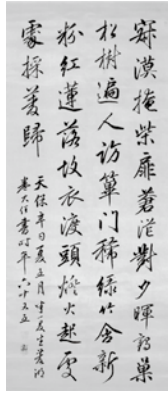 寂漠掩柴扉蒼茫對夕暉鶴巢
松樹遍人訪篳門稀綠竹含新
粉紅蓮落故衣渡頭燈火起處
處採菱歸
天保辛丑夏五月菱湖
卷大任書時年六十又五